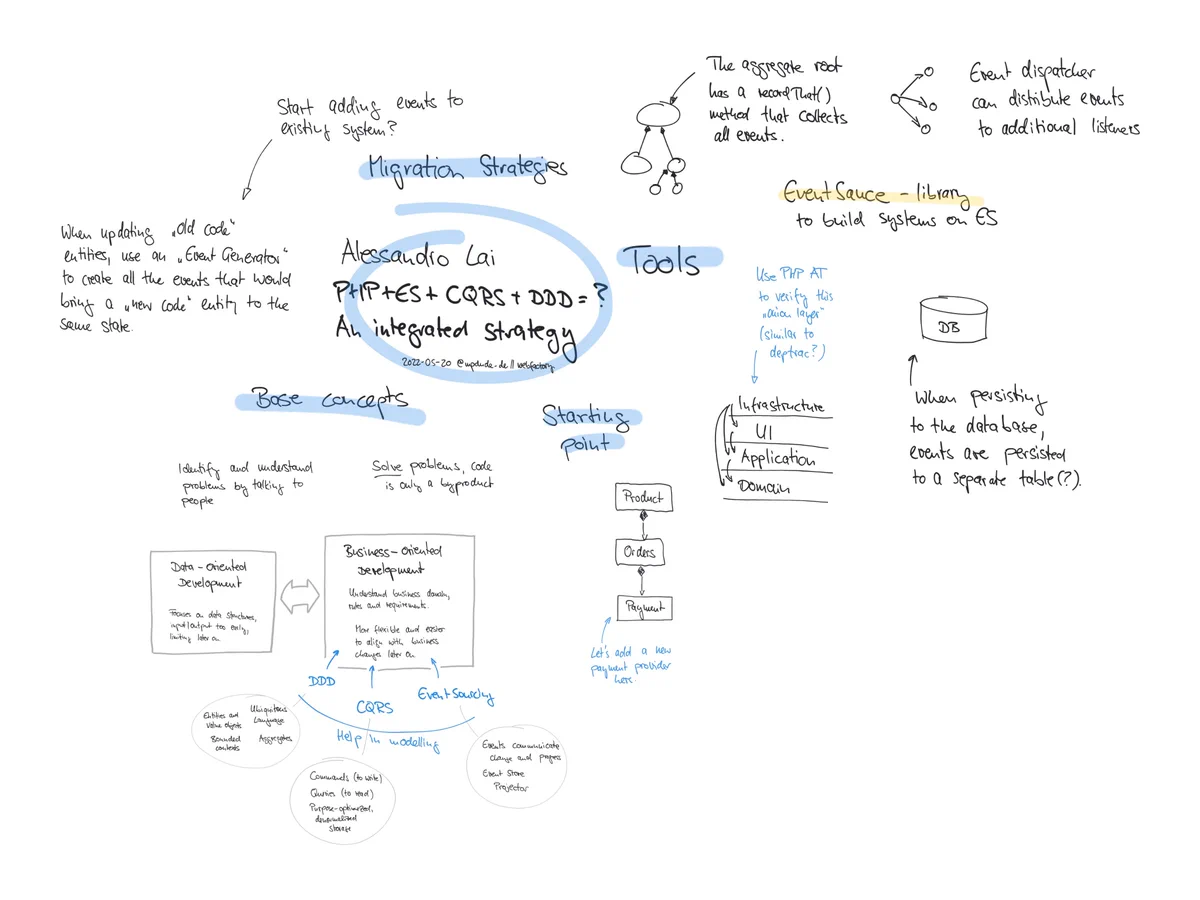 Start adding events to
existing system?
Migration Strategies
When updating „Old code“
entities, use an „Event Generator“
to create all the events that would
bring a „new code“ entity to the
same state.
Alessandro Lai
PHP+ES+CQRS+DDD=?
An integrated strategy
2022-05-20 @mpdude.de // webfactory
The aggregate root
has a recordThat()
method that collects
all events.
Event dispatcher
can distribute events
to additional listeners
EventSauce – library
to build systems on ES
Tools
Use PHP AT
to verify this
„onion layer“
(similar to
deptrac?)
Infrastructure
UI
Application
Domain
DB
When persisting
to the database,
events are persisted
to a separate table(?).
Base concepts
Identify and understand
problems by talking to
people
Solve problems, code
is only a byproduct
Data-oriented
Development
Focuses on data structures,
input/output too early,
limiting later on
Business-oriented
Development
Understand business domain,
rules and requirements.
More flexible and easier
to align with business
changes later on.
DDD
CQRS
Event Sourcing
Help in modelling
Entities and
Value objects
Ubiquitous
Language
Bounded
contexts
Aggregates
Commands (to write)
Queries (to read)
Purpose-optimized,
denormalized
storage
Events communicate
change and progress
Event Store
Projector
Starting
point
Product
Orders
Payment
Let's add a new
payment provider
here.